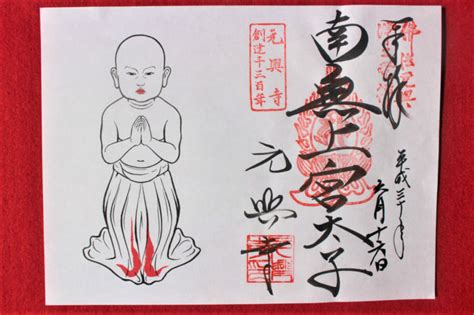 奉拝
平成三十年
六月十六日
南無上宮太子
元興寺
創建千三百年
元興寺